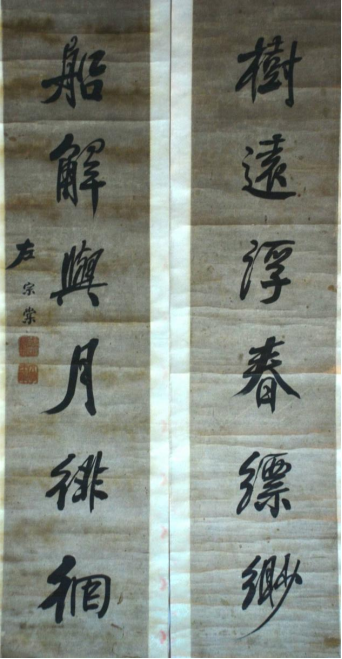 樹遠浮春縹緲
船解與月徘徊
左宗棠